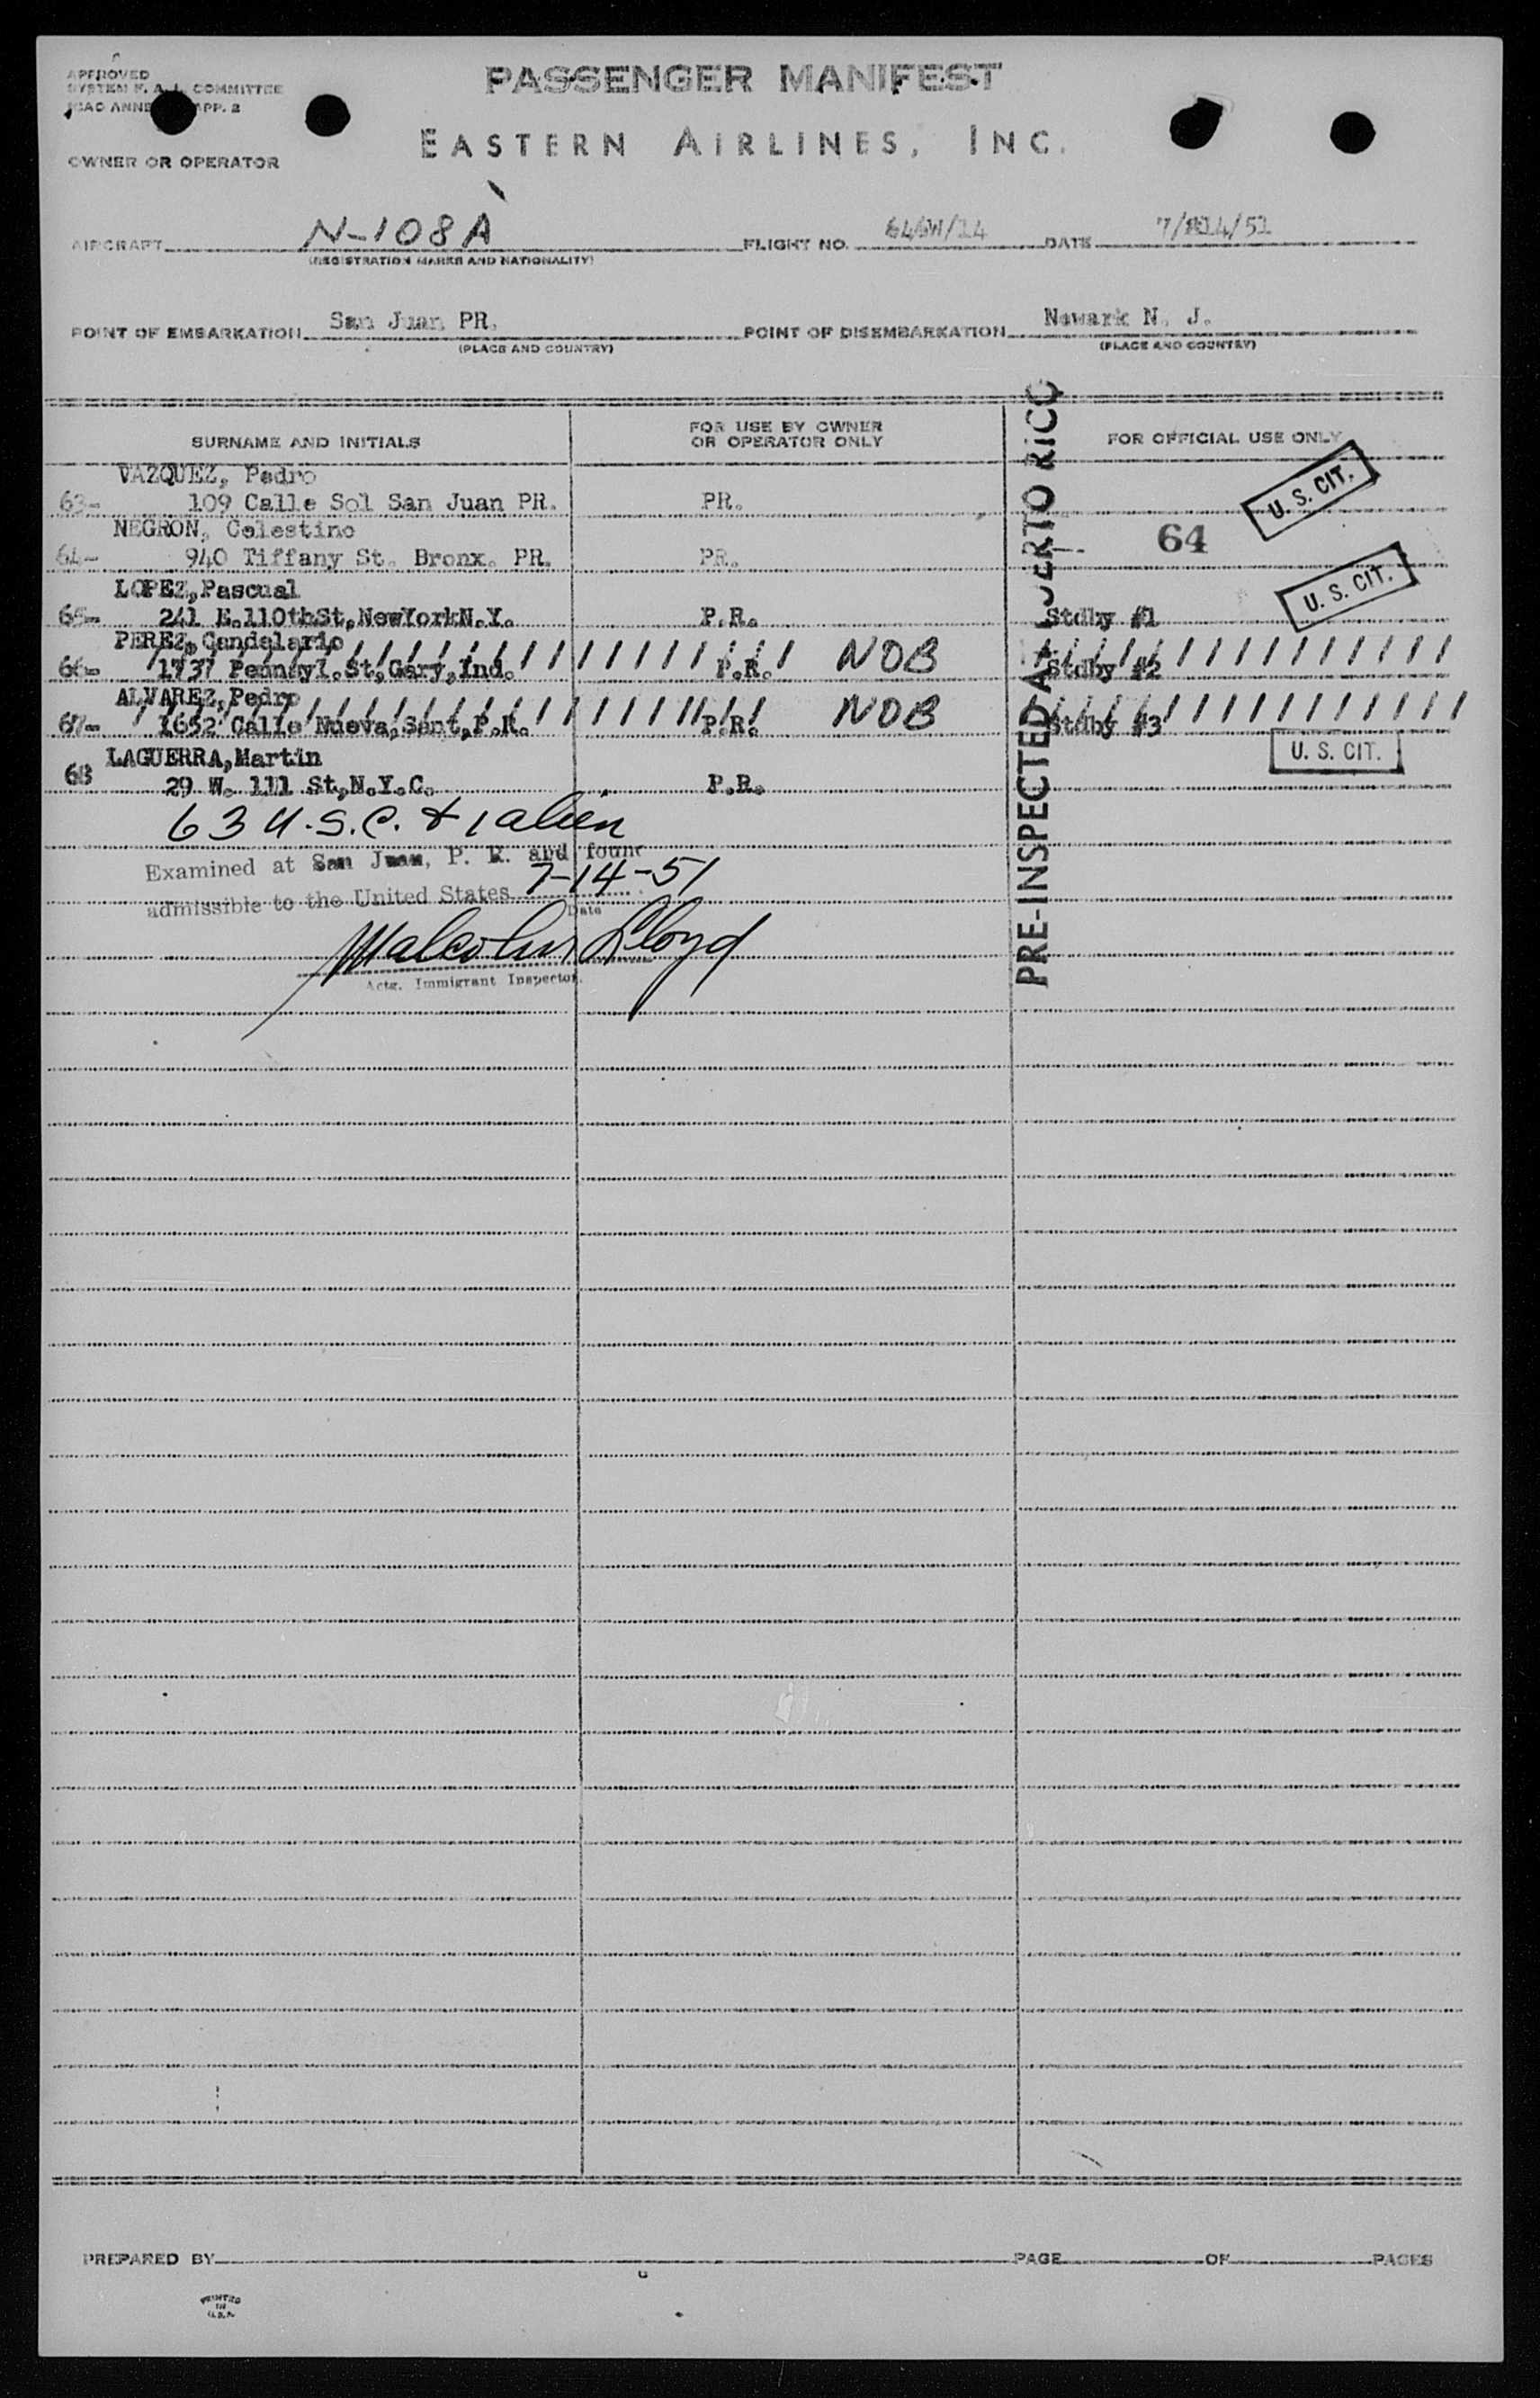 PASSENGER MANIFEST
APPROVED
SYSTEM F. A. L. COMMITTEE
ICAO ANNE APP. 2
EASTERN AIRLINES, INC.
OWNER OR OPERATOR
AIRCRAFT N-108A FLIGHT NO. DATE
(REGISTRATION MARKS AND NATIONALITY)
POINT OF EMBARKATION San Juan PR. POINT OF DISEMBARKATION Newark N. J.
(PLACE AND COUNTRY) (PLACE AND COUNTRY)
SURNAME AND INITIALS FOR USE BY OWNER OR OPERATOR ONLY FOR OFFICIAL USE ONLY
VAZQUEZ, Pedro
63- 109 Calle Sol San Juan PR. PR. U. S. CIT.
NEGRON, Celestino
64- 940 Tiffany St. Bronx. PR. PR. 64
LOPEZ,Pascual U. S. CIT.
65- 241 E.110thSt,NewYorkN.Y. P.R. Stdby #1
PEREZ,Candelario
66- 1737 Pennsyl.St,Gary,Ind. P.R. NOB Stdby #2
ALVAREZ,Pedro
67- 1652 Calle Nueva,Sant,P.R. P.R. NOB Stdby #3
LAGUERRA,Martin U. S. CIT.
68 29 W. 111 St,N.Y.C. P.R.
63 U.S.C. & 1 alien
Examined at San Juan, P. R. and found
admissible to the United States 7-14-51
Date
Malcolm Lloyd
Actg. Immigrant Inspector.
PRE-INSPECTED AT PUERTO RICO
PREPARED BY PAGE OF PAGES
PRINTED
IN
U.S.A.